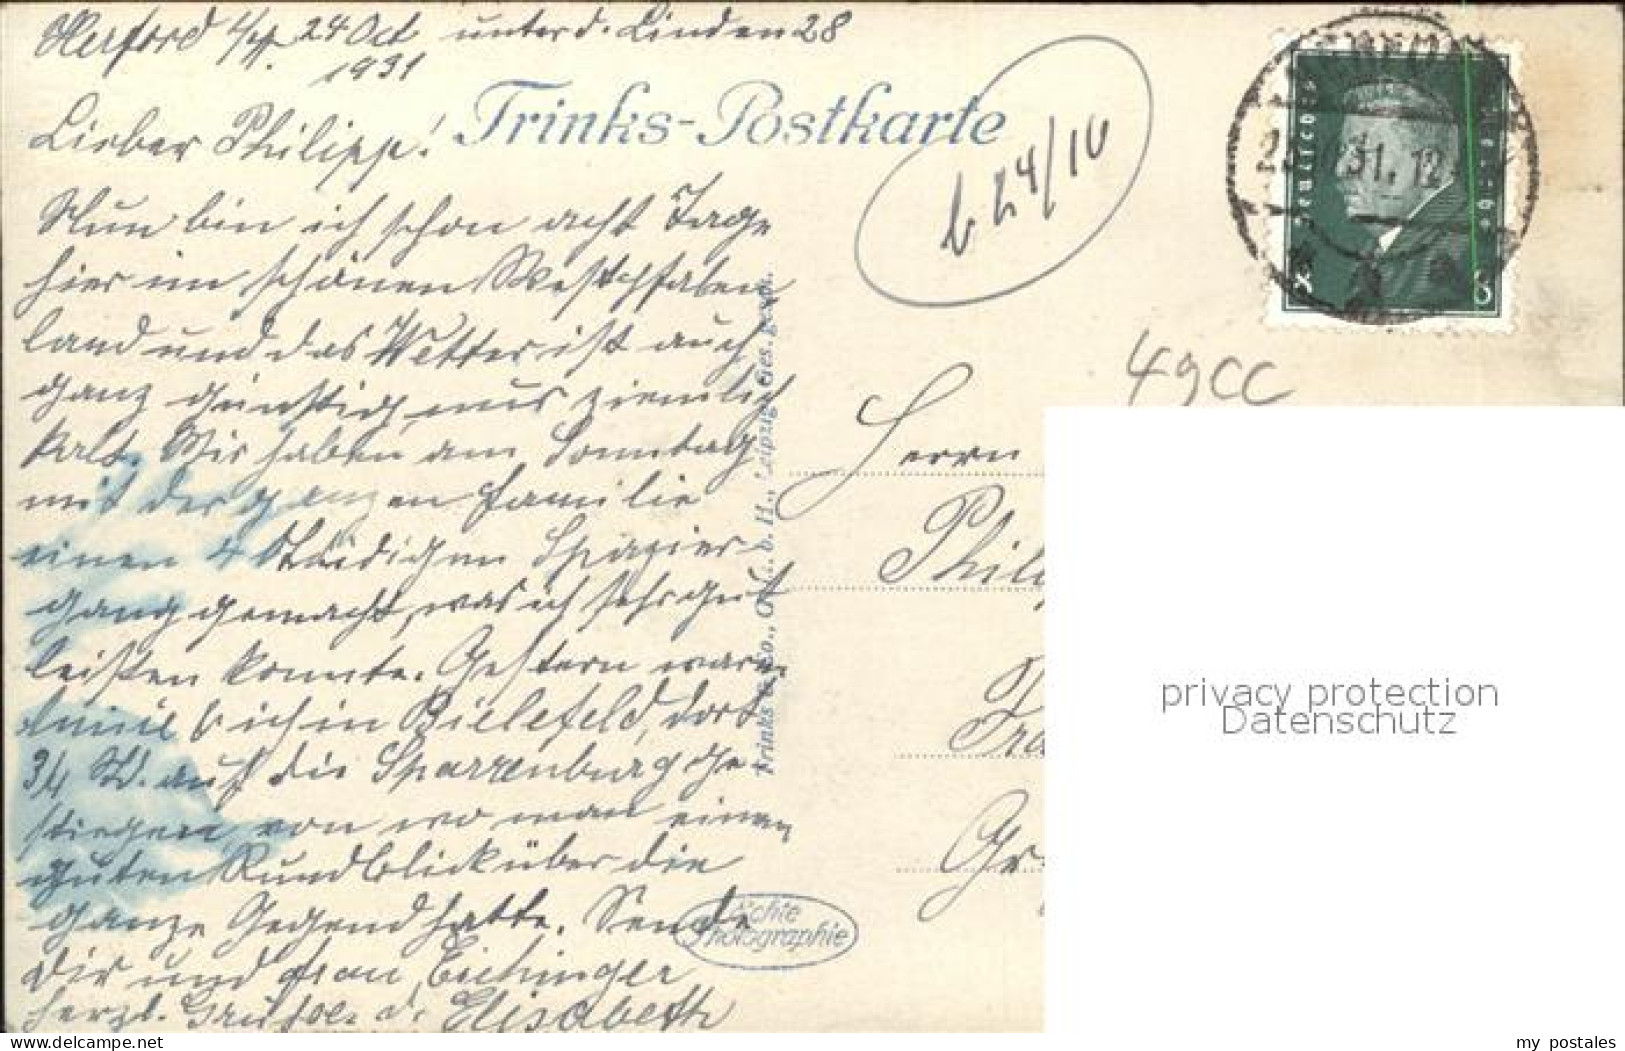 Herford i/W. 24 Oct unter d. Linden 28
1931
Lieber Philipp!
Trinks-Postkarte
b 24/10
Nun bin ich schon acht Tage
hier im schönen Westphfalen
land und das Wetter ist auch
ganz günstig, nur ziemlich
kalt. Wir haben am Sonntag
mit der ganzen Familie
einen 4 stündigen Spazier-
gang gemacht, was ich sehr gut
leisten konnte. Gestern waren
ich in Bielefeld, dort
3/4 St. auf die Sparrenburg ge-
stiegen von wo man einen
guten Rundblick über die
ganze Gegend hatte. Sende
Dir und Frau Eichinger
herzl. Grüße. d. Elisabeth
Trinks & Co., G. m. b. H., Leipzig. Ges. gesch.
Echte
Photographie
Deutsches Reich
8
31.12
49cc
Herrn
Phili
Gr
privacy protection
Datenschutz
my_postales